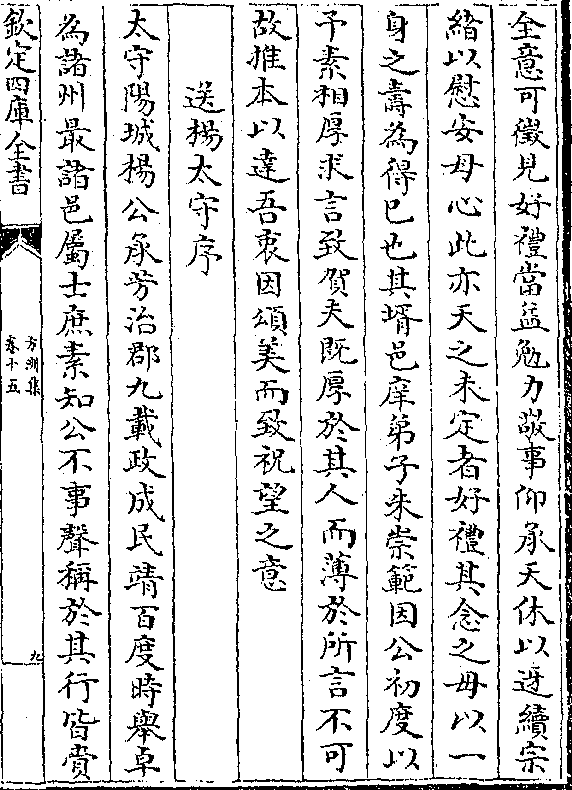 全意可徵見好禮當益勉力敬事仰承天休以迓續宗
緒以慰安母心此亦天之未定者好禮其念之毋以一
身之壽為得已也其壻邑庠弟子朱崇範因公初度以
予素相厚求言致賀夫既厚於其人而薄於所言不可
故推本以達吾衷因頌美而致祝望之意
送楊太守序
太守陽城楊公承芳治郡九載政成民靖百度時舉卓
為諸州最諸邑屬士庶素知公不事聲稱於其行皆賫
欽定四庫全書
方洲集
卷十五
九